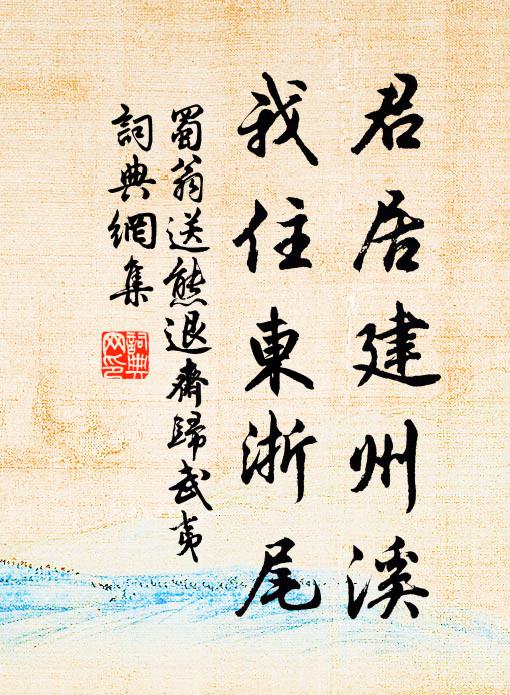 君居建州溪
我住東浙尾
蜀翁送熊退齋歸武夷
詞典網集
詞典